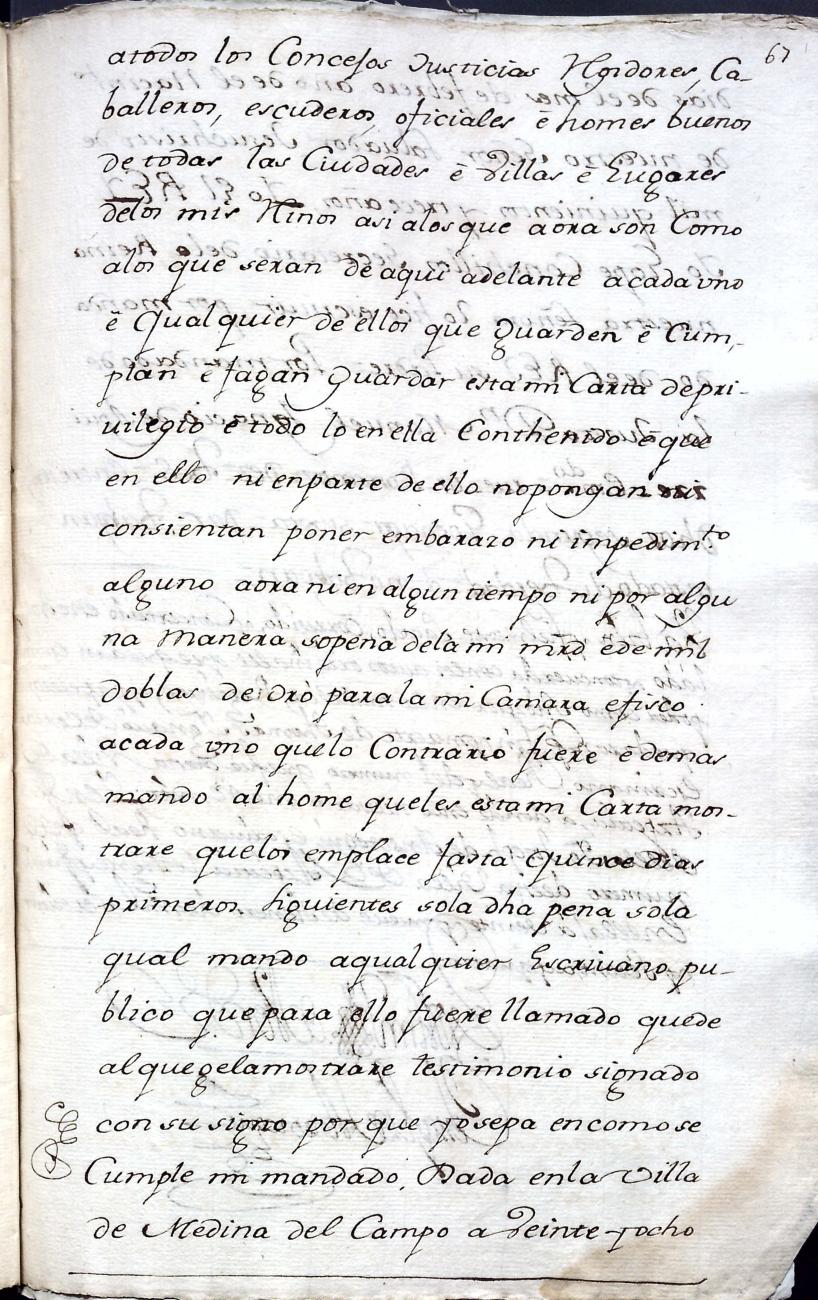 67
atodos los Concejos Justicias Rgidores, Ca-
balleros, escuderos, oficiales ē homes buenos
de todas las Ciudades ē Villas ē Lugares
delos mis Rinos asi alosque aora son Como
alos que seran de aqui adelante acada vno
ē Qualquier de ellos que Guarden ē Cum,-
plan ē fagan Guardar esta mi Carta depri-
uilegio e todo lo en ella Conthenido ēque
en ello ni enparte de ello nopongan ni
consientan poner embarazo ni impedim.to
alguno aora ni en algun tiempo ni por algu
na Manera, sopena dela mi mrd ede mil
doblas de Oro para la mi Camara efisco
acada vno quelo Contrario fuere ē demas
mando al home queles esta mi Carta mos-
trare quelos emplace fasta Quince dias
primeros siguientes sola dha pena sola
qual mando aqualquier Escriuano pu-
blico que para ello fuere llamado quede
al quegelamostrare testimonio signado
con su signo por que yo sepa encomo se
Cumple mi mandado. Dada enla Villa
de Medina del Campo a Veinte yocho